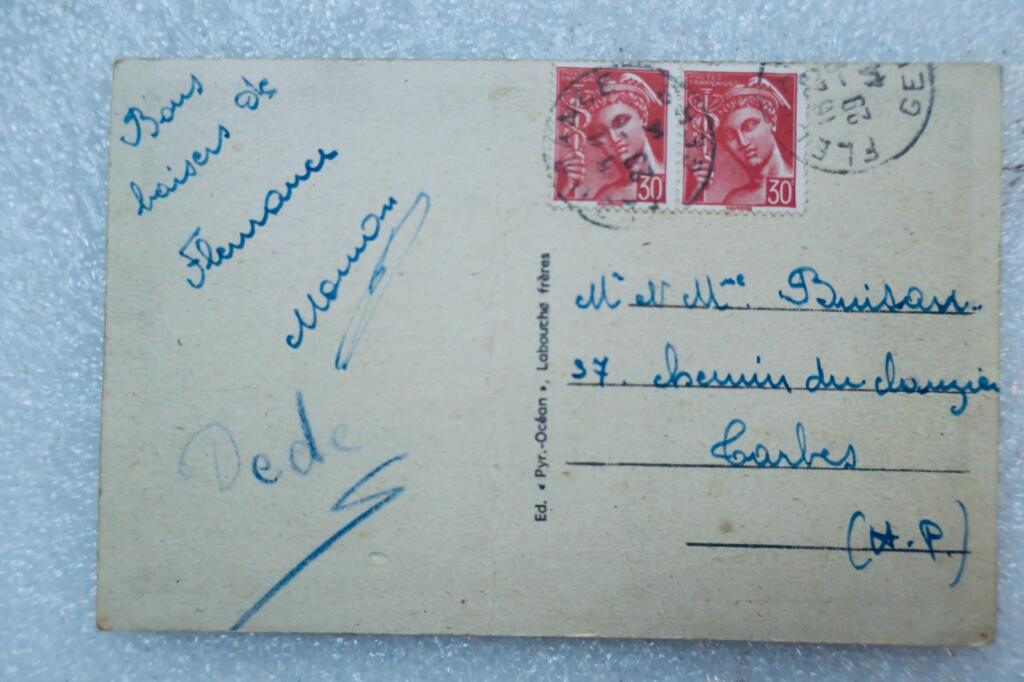 Bons
baisers de
Fleurance
Monon
Dede
POSTES FRANÇAISES
30
POSTES FRANÇAISES
30c
FLE
GE
Ed. « Pyr.-Océan », Labouche frères
Mr et Mme. Buisan
37. chemin du
Tarbes
(H. P.)